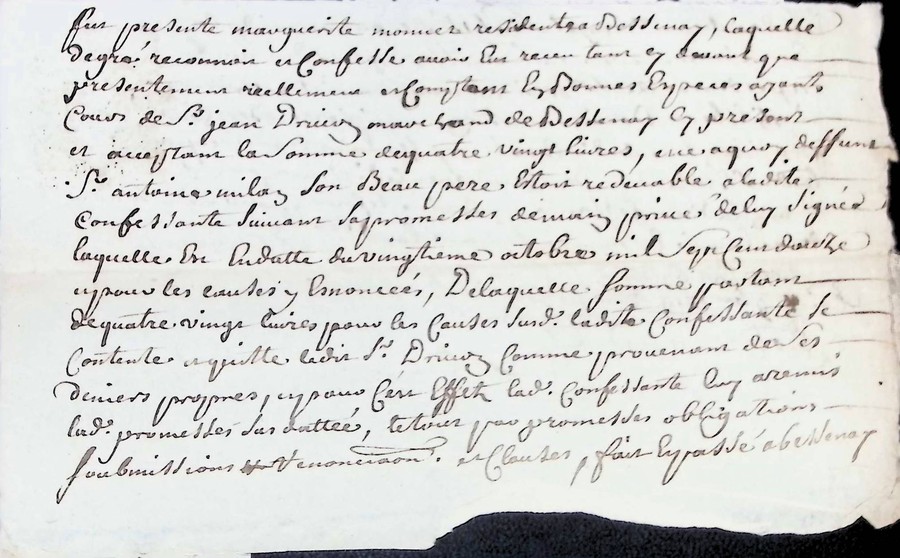 fut presente marguerite monier residente a Bessenay, laquelle
de gré reconnoit et Confesse avoir Eu receu tant cy devant que
presentement reellement et Comptant En Bonnes Especes ayant
Cours de Sr. jean Drivon marchand de Bessenay Cy present
et acceptant la Somme de quatre vingt livres, en a quoy deffunt
Sr. antoine milan Son Beau pere Estoit redevable a ladite
Confessante Suivant sa promesses de main privée de luy Signée
laquelle Est En datte du vingtieme octobre mil Sept Cent douze
et pour les causes y Enoncées, De laquelle Somme partant
de quatre vingt livres pour les Causes susd. ladite Confessante se
Contente et quitte ledit Sr. Drivon Comme provenant de Ses
deniers propres, et pour C'est Effect lad. Confessante luy a remis
lad. promesses sus dattée, le tout par promesses obligations
soubmissions renonciaons. et Clauses, fait Et passé a bessenay